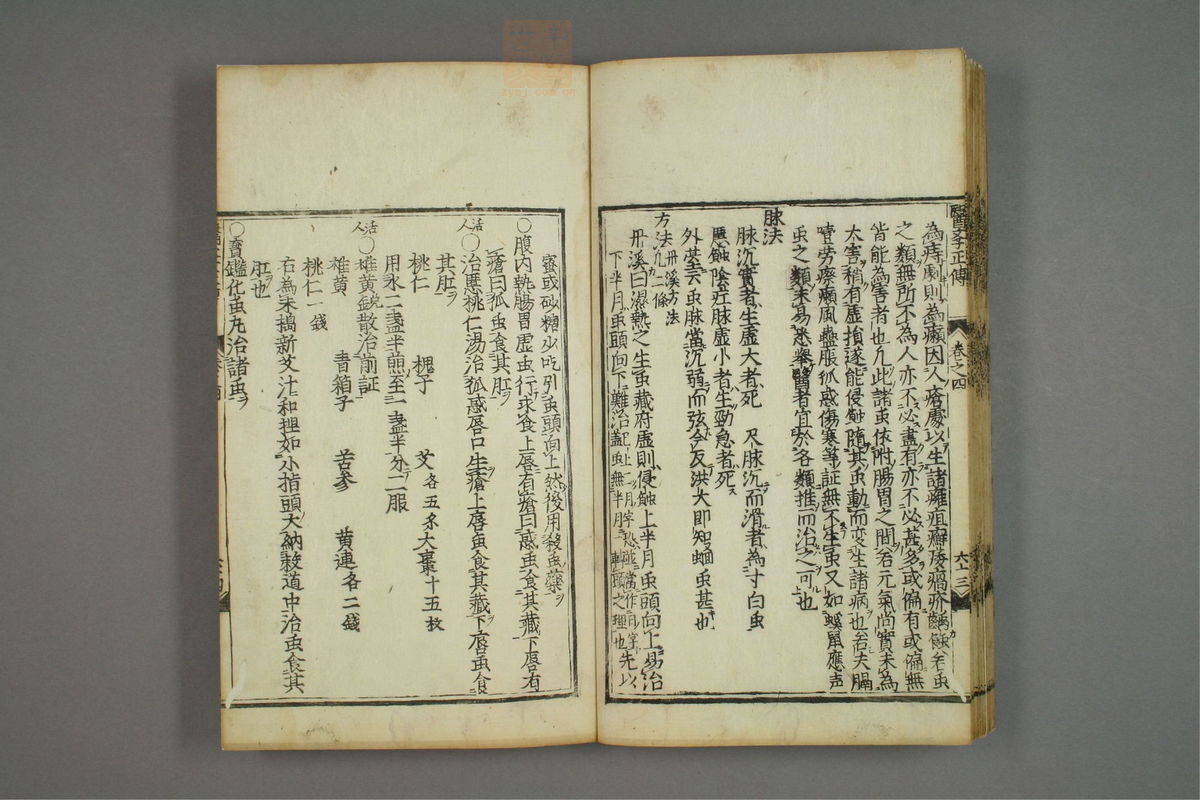 醫學正傳
卷之四
六十三
為痔劇則為癩因人瘡處以生諸癰疽癬瘻瘑疥齲蝕等虫
之類無所不為人亦不必盡有亦不必甚多或偏有或偏無
皆能為害者也凡此諸虫依附腸胃之間若元氣尚實未為
大害稍有虛損遂能侵蝕隨其虫動而変生諸病也若夫膈
噎劳瘵癩風蠱脹狐惑傷寒等証無不生虫又如螟鼠應声
虫之類未易悉舉醫者宜於各類推而治之可也
脉法
脉沉實者生虛大者死 尺脉沉而滑者為寸白虫
䘌蝕陰疘脉虛小者生勁急者死
外臺云虫脉當沉弱而弦今反洪大即知蛔虫甚也
方法 丹溪方法凡二條
丹溪曰濕熱之生虫藏府虛則侵蝕上半月虫頭向上易治
下半月虫頭向下難治 先以
蜜或砂糖少吃引虫頭向上然後用殺虫藥
○腹内熱腸胃虛虫行求食上唇有瘡曰惑虫食其藏下唇有
瘡曰狐虫食其肛
活人○治䘌桃仁湯治狐惑唇口生瘡上唇虫食其藏下唇虫食
其肛
桃仁 槐子 艾各五錢大棗十五枚
用水二盞半煎至一盞半分二服
活人○雄黃銳散治前証
雄黄 青箱子 苦參 黄連各二錢
桃仁一錢
右為末搗新艾汁和揑如小指頭大納穀道中治虫食其
肛也
○寳鑑化虫丸治諸虫